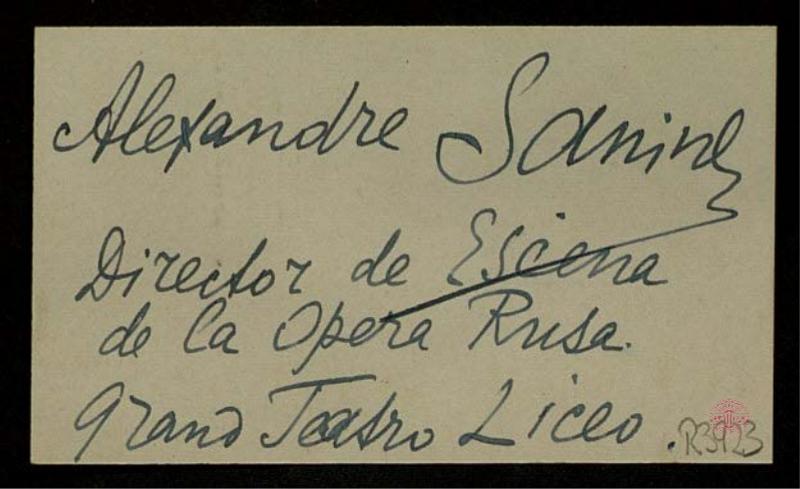 Alexandre Sanine
Director de Escena
de la Opera Rusa.
Grand Teatro Liceo.
R3923